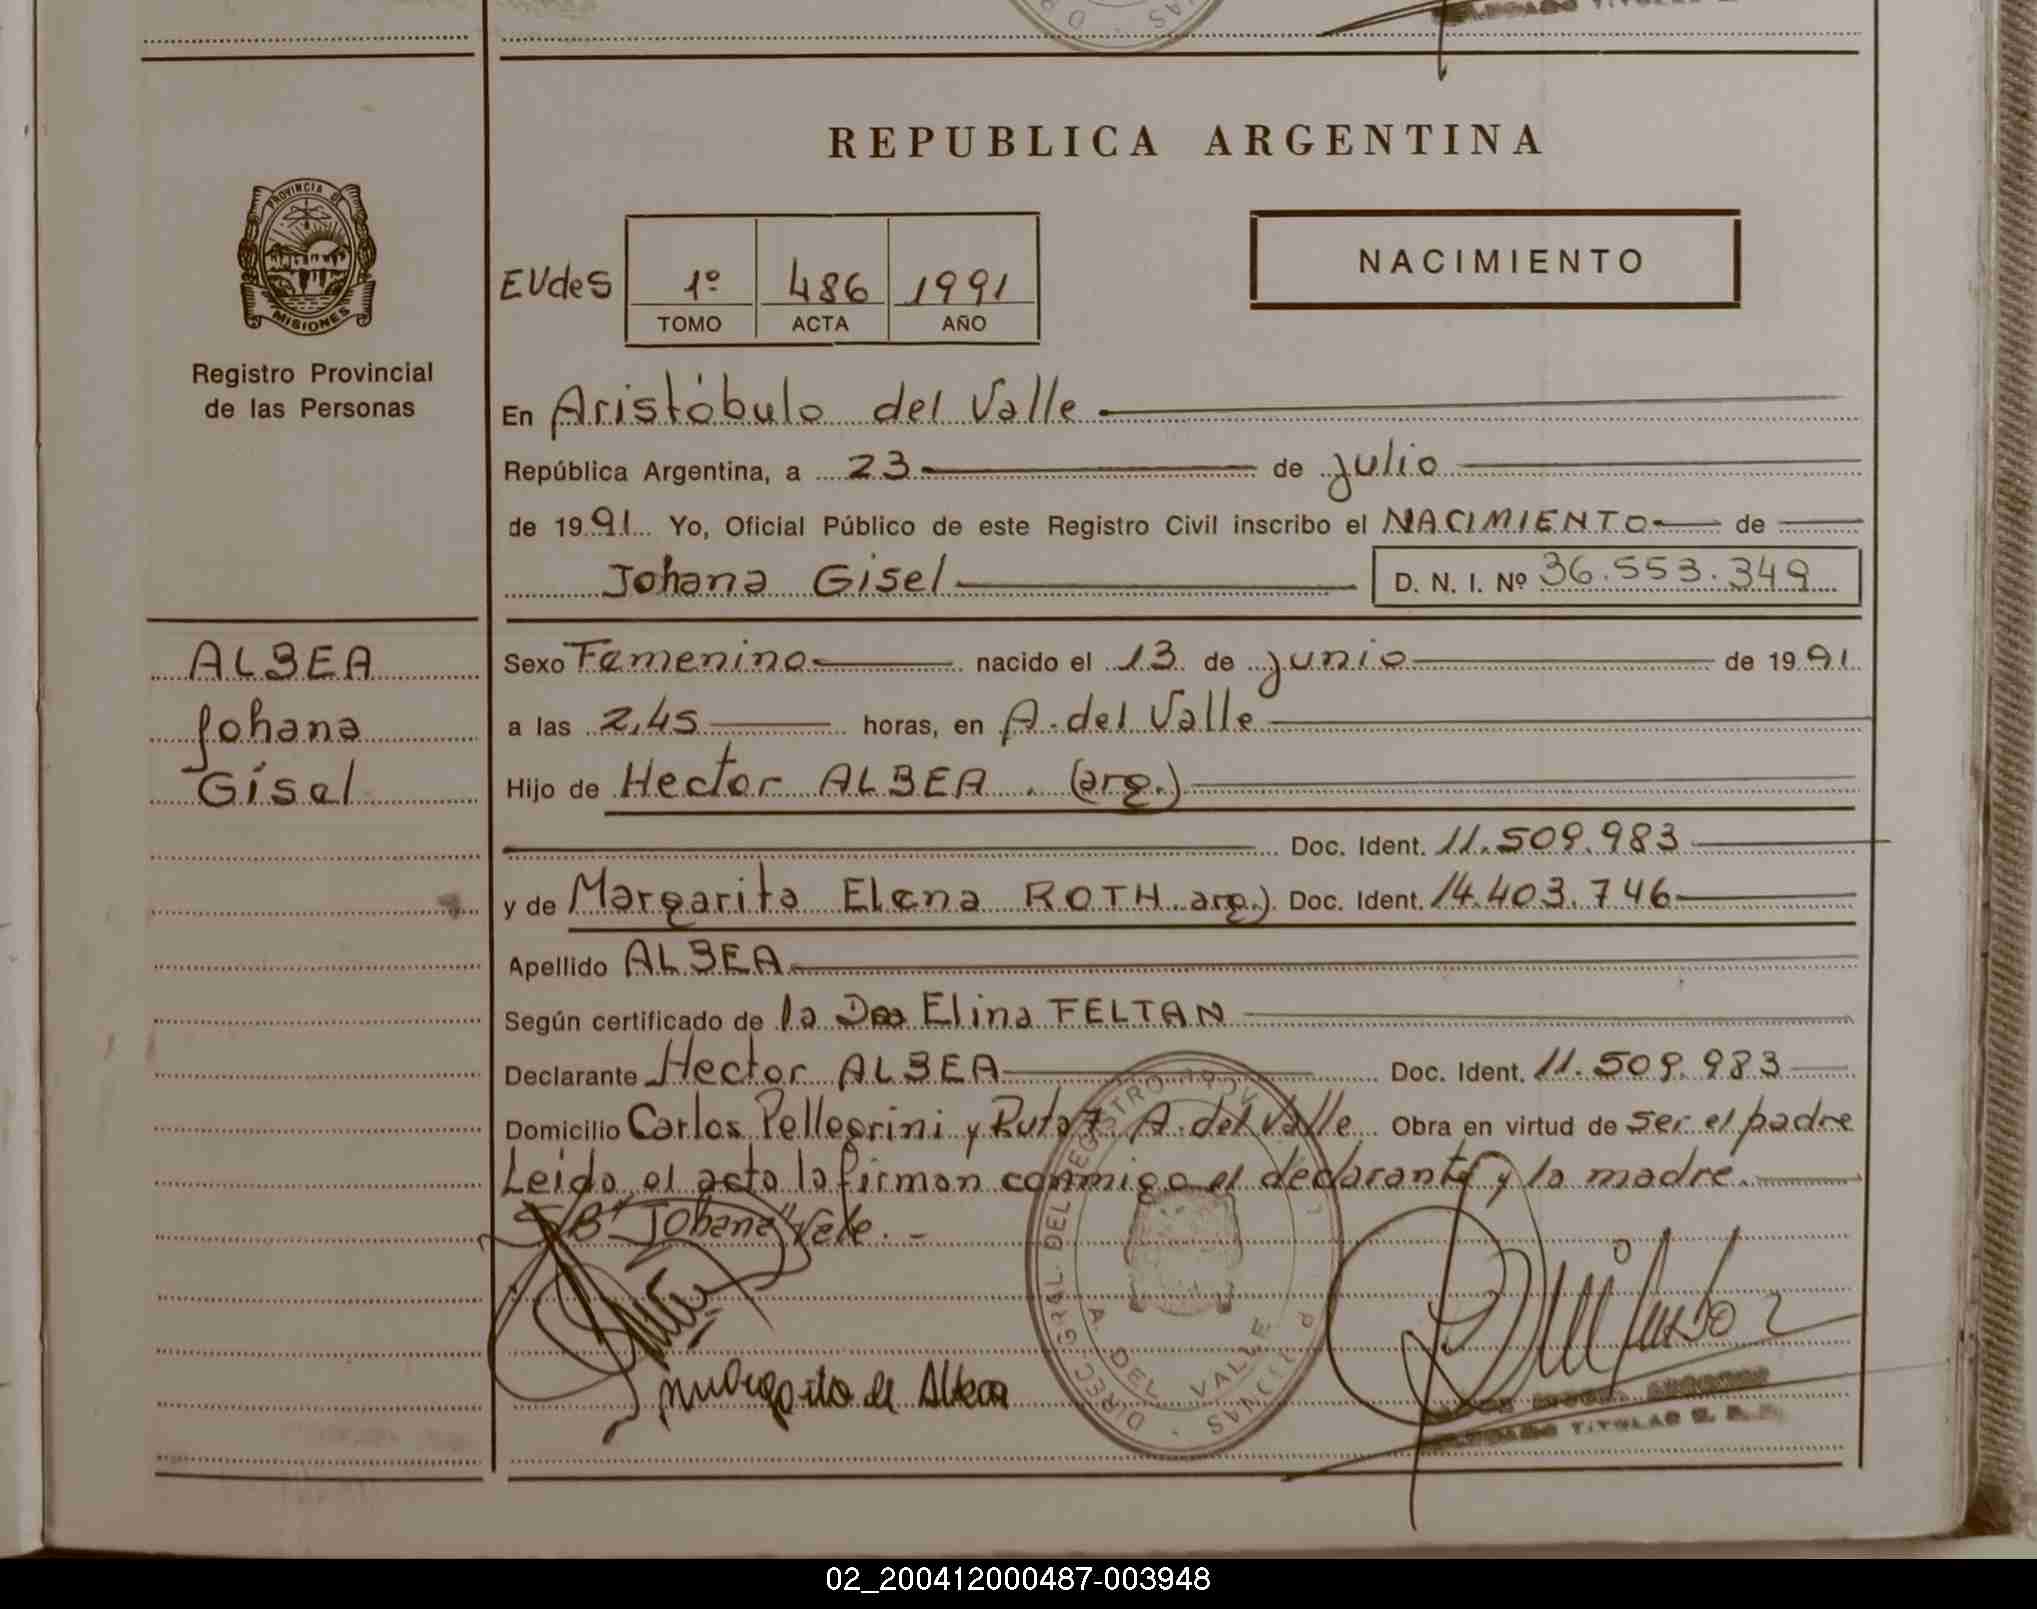 REPUBLICA ARGENTINA
PROVINCIA DE
MISIONES
Registro Provincial
de las Personas
EVdeS
1º 486 1991
TOMO ACTA AÑO
NACIMIENTO
En Aristóbulo del Valle
República Argentina, a 23 de julio
de 1991 Yo, Oficial Público de este Registro Civil inscribo el NACIMIENTO de
Johana Gisel D. N. I. Nº 36.553.349
ALBEA
Johana
Gisel
Sexo Femenino nacido el 13 de junio de 1991
a las 2,45 horas, en A. del Valle
Hijo de Hector ALBEA (arg.)
Doc. Ident. 11.509.983
y de Margarita Elena ROTH arg.) Doc. Ident. 14.403.746
Apellido ALBEA
Según certificado de la Elina FELTAN
Declarante Hector ALBEA Doc. Ident. 11.509.983
Domicilio Carlos Pellegrini y Ruta 7 A. del Valle Obra en virtud de ser el padre
Leida el acta la firman conmigo el declarante y la madre.
S/B "Johana" Vale. -
de Albea
DIREC. GRAL. DEL REGISTRO
A. DEL VALLE
TITULAR
02_200412000487-003948